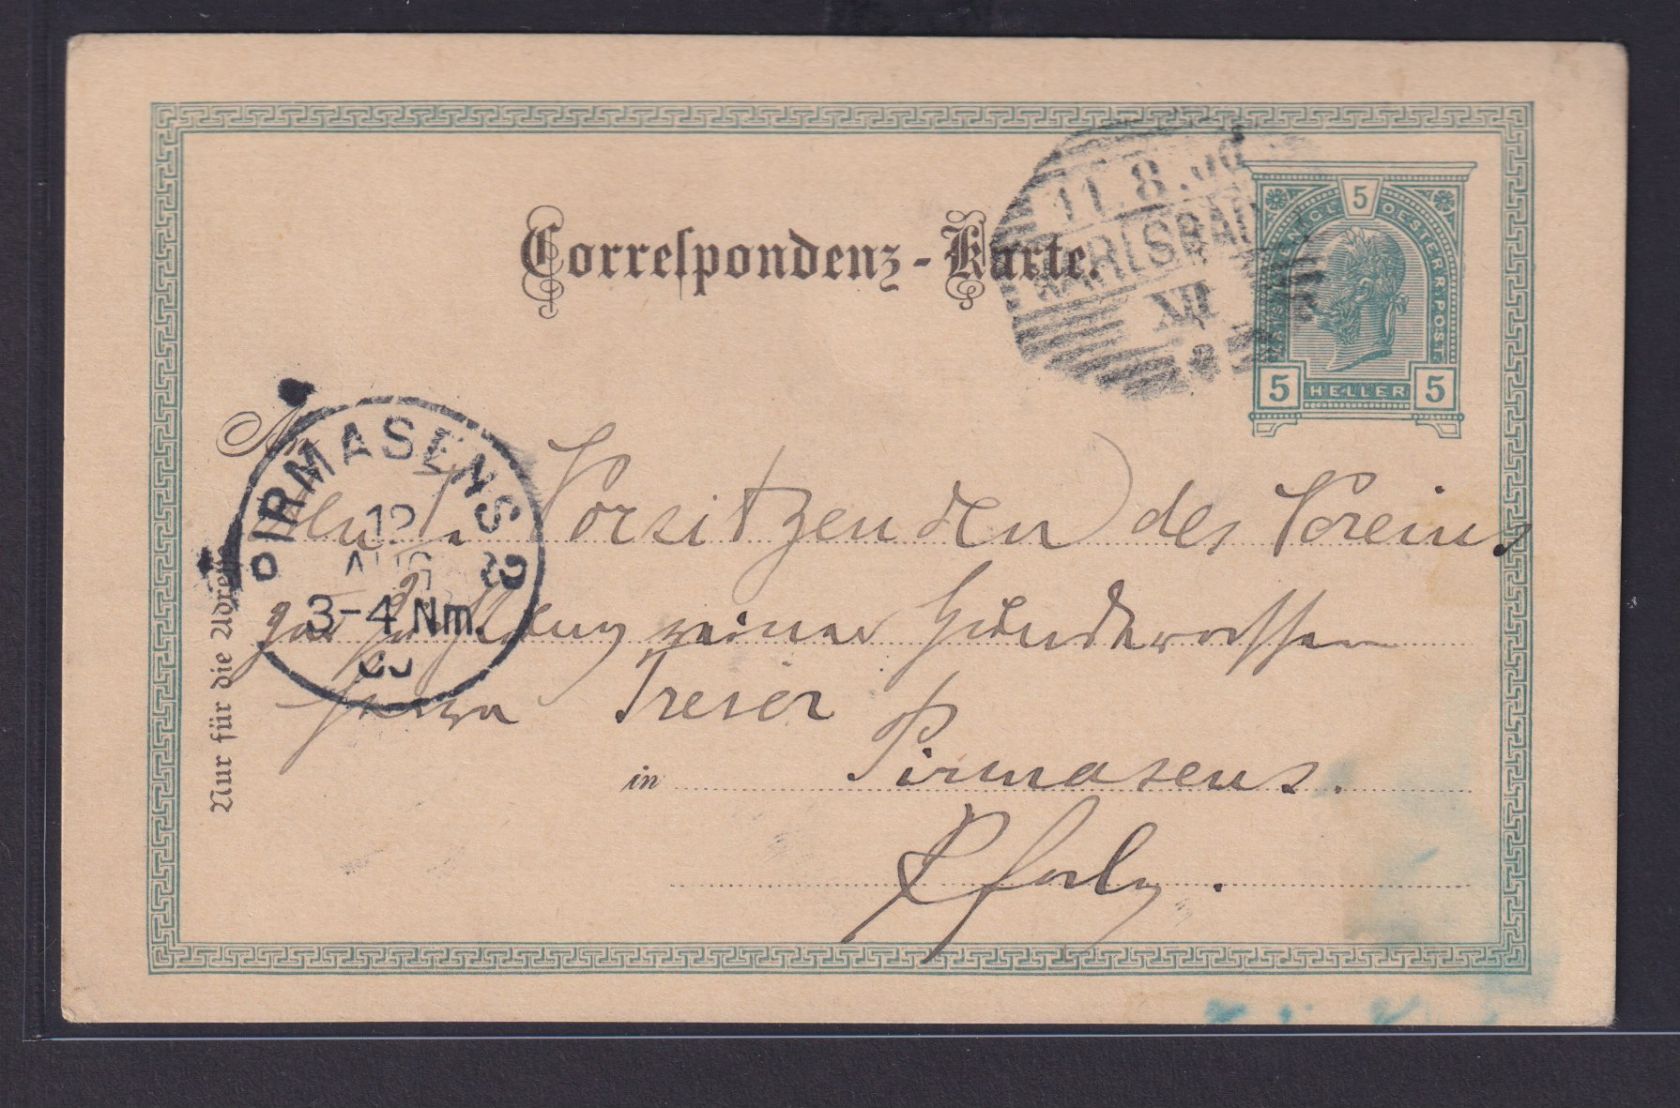 11.8.00
KARLSBAD
XII
5
KAISERL. KÖNIGL. OESTERR. POST
5 HELLER 5
Correſpondenz-Karte.
An
PIRMASENS
12
AUG
3-4 Nm.
00
Vorsitzenden des Vereins
zur
Herrn Treser
in Pirmasens.
Pfalz.
Nur für die Adreſſe